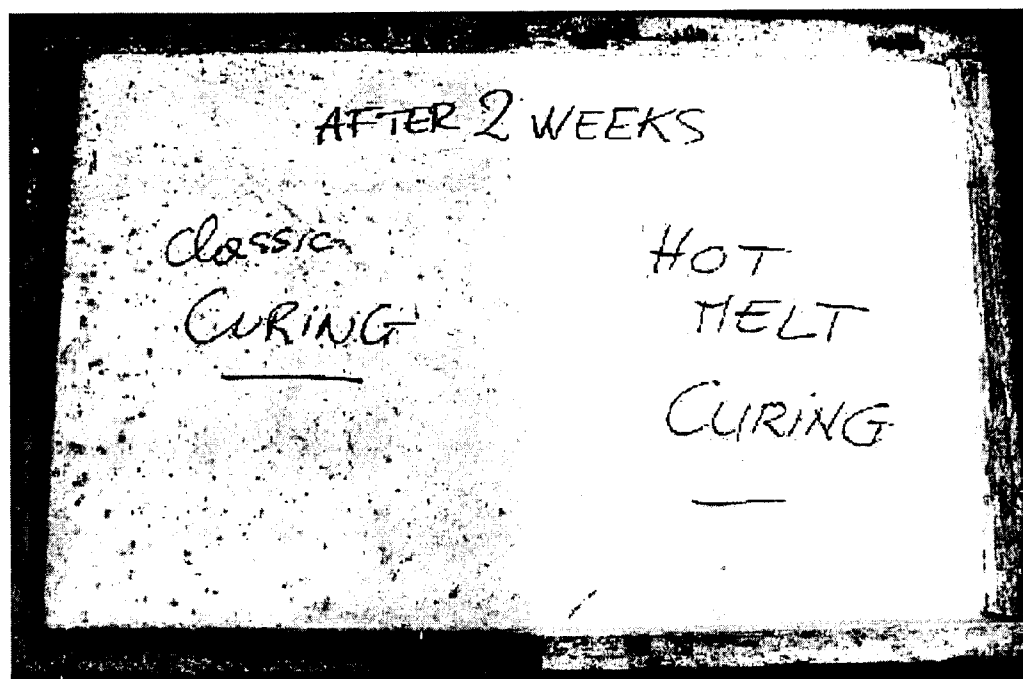 AFTER 2 WEEKS
classic
CURING
HOT
MELT
CURING